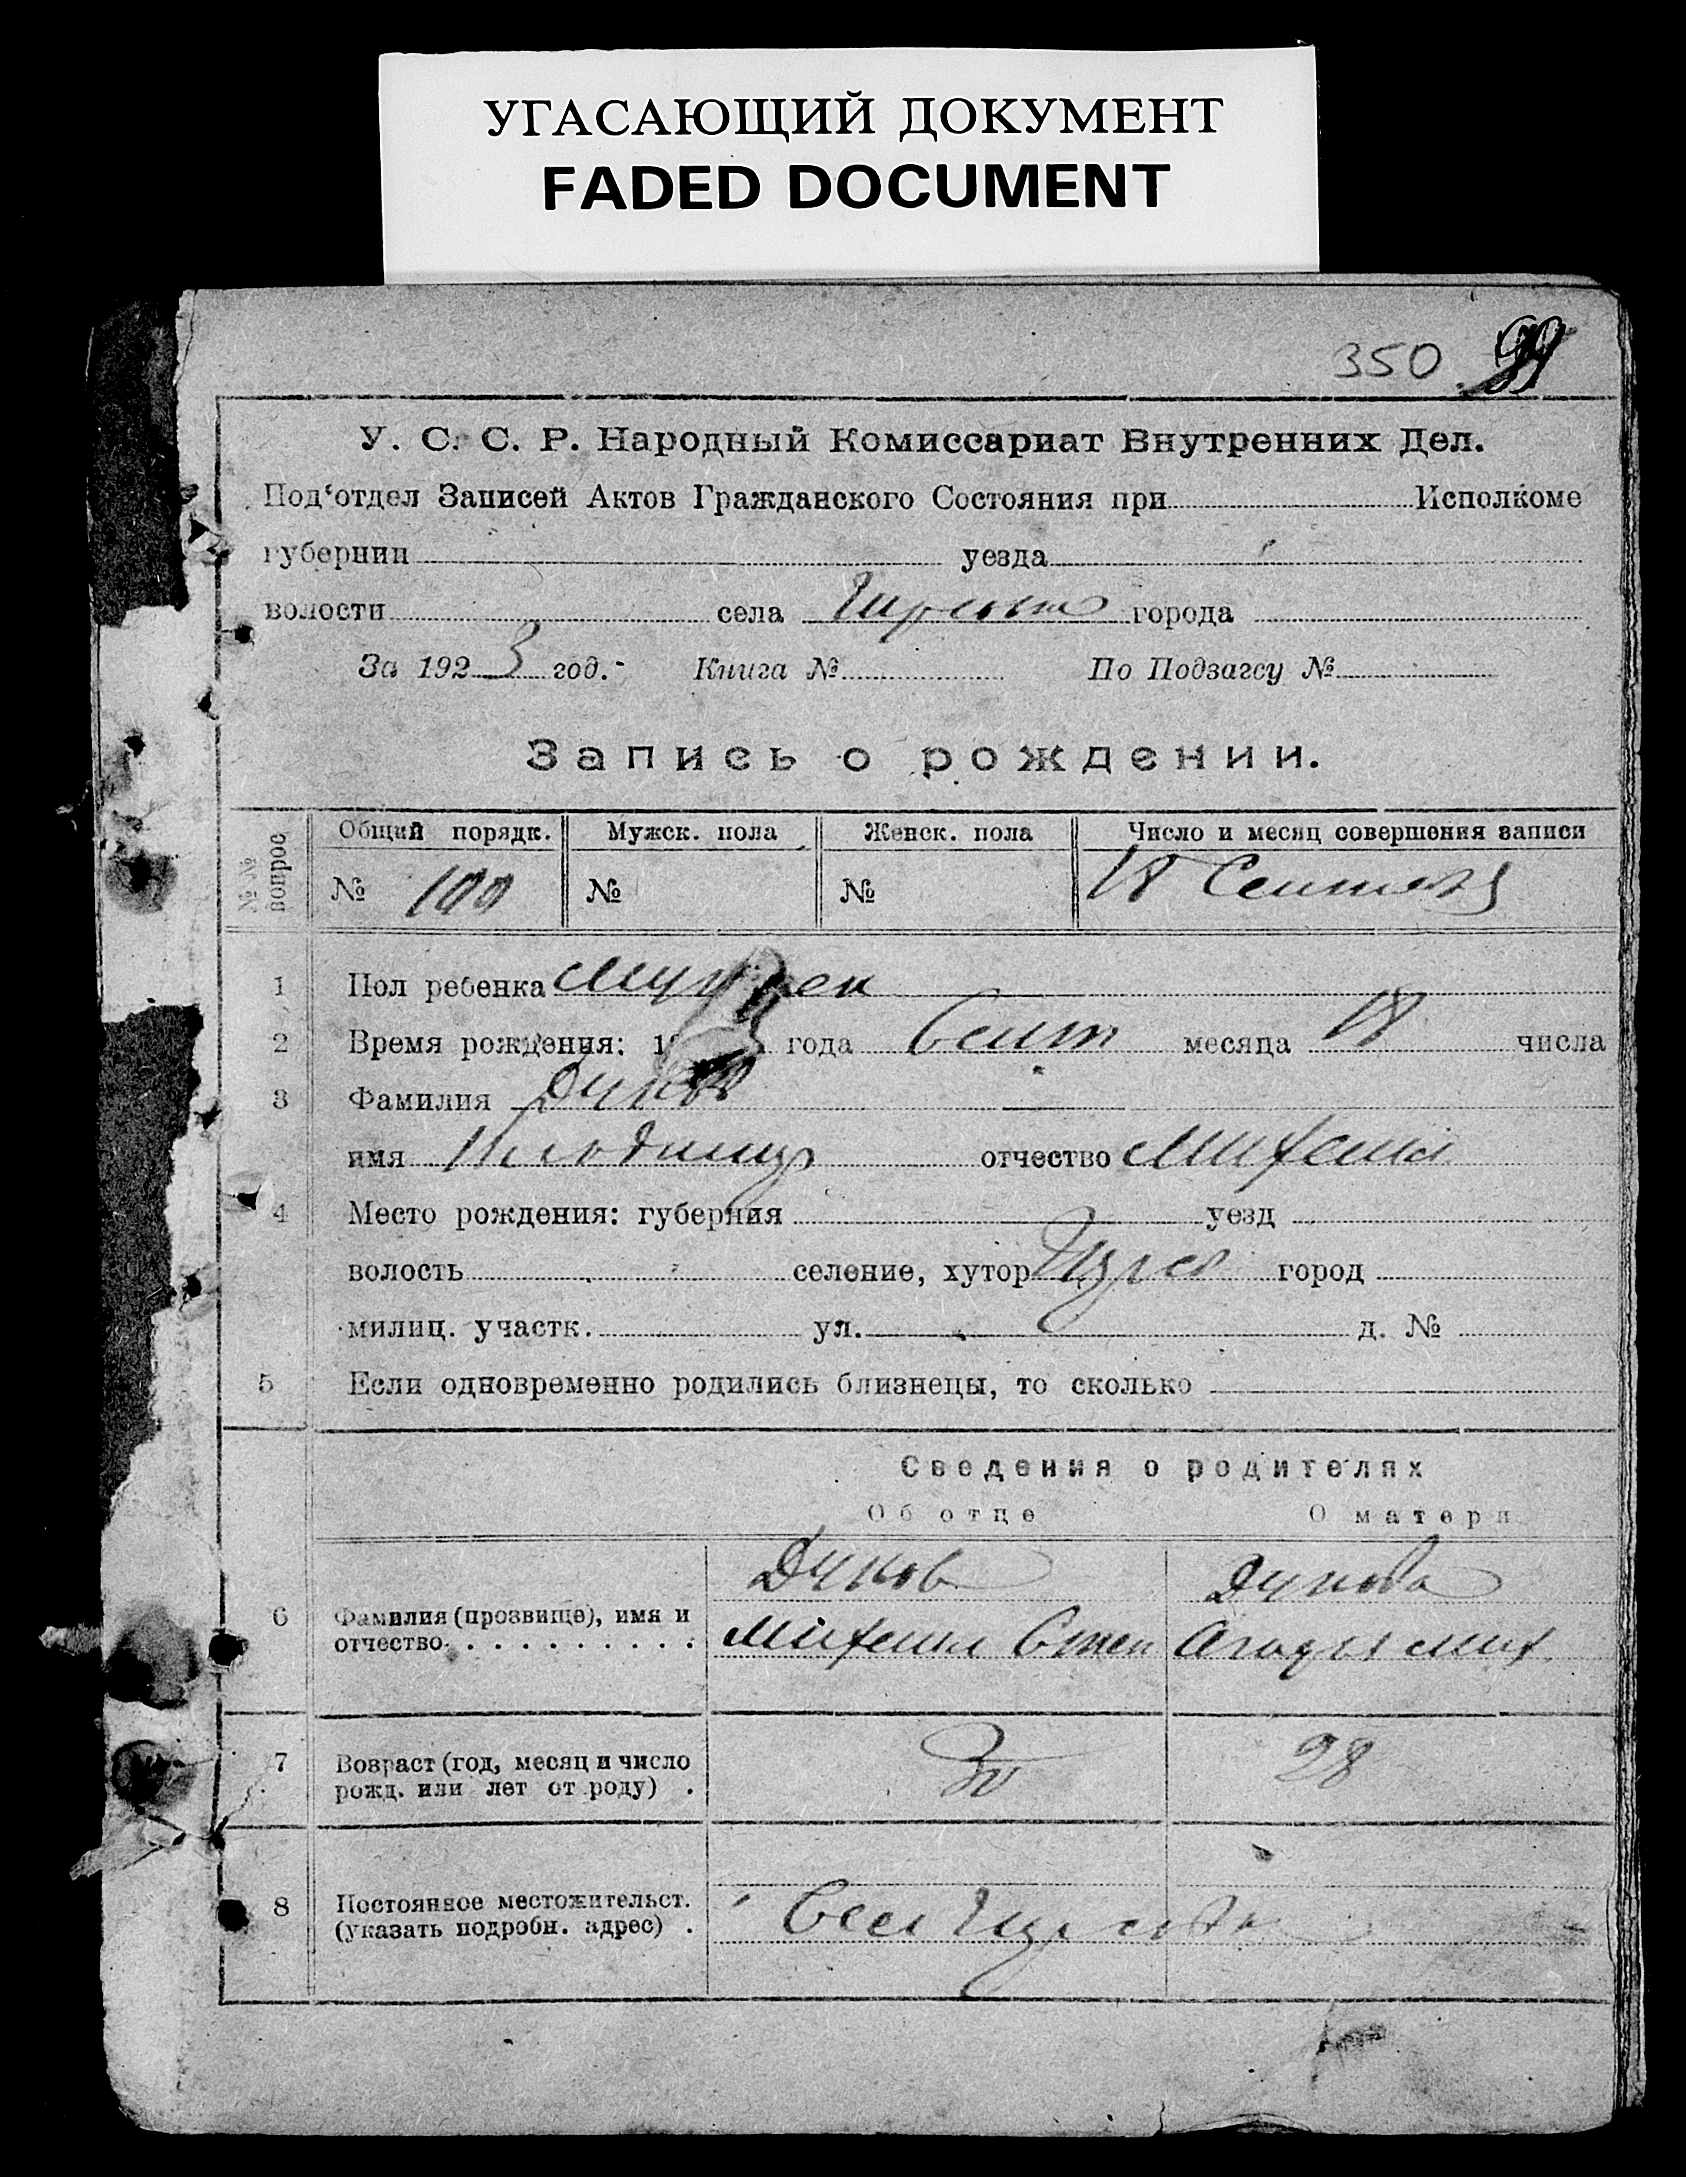 УГАСАЮЩИЙ ДОКУМЕНТ
FADED DOCUMENT
350
У. С. С. Р. Народный Комиссариат Внутренних Дел.
Под‘отдел Записей Актов Гражданского Состояния при Исполкоме
губернии уезда
волости села города
За 1923 год. Книга № По Подзагсу №
Запись о рождении.
№№ вопрос
Общий порядк. Мужск. пола Женск. пола Число и месяц совершения записи
№ 100 № № 18
1 Пол ребенка
2 Время рождения: 1 года Сент месяца 18 числа
3 Фамилия Дуков
имя отчество Михаил
4 Место рождения: губерния уезд
волость селение, хутор город
милиц. участк. ул. д. №
5 Если одновременно родились близнецы, то сколько
Сведения о родителях
Об отце О матери
Дуков Дукова
6 Фамилия (прозвище), имя и
отчество. Михаил Степ мих.
7 Возраст (год, месяц и число
рожд. или лет от роду) . 30 28
8 Постоянное местожительст.
(указать подробн. адрес) .